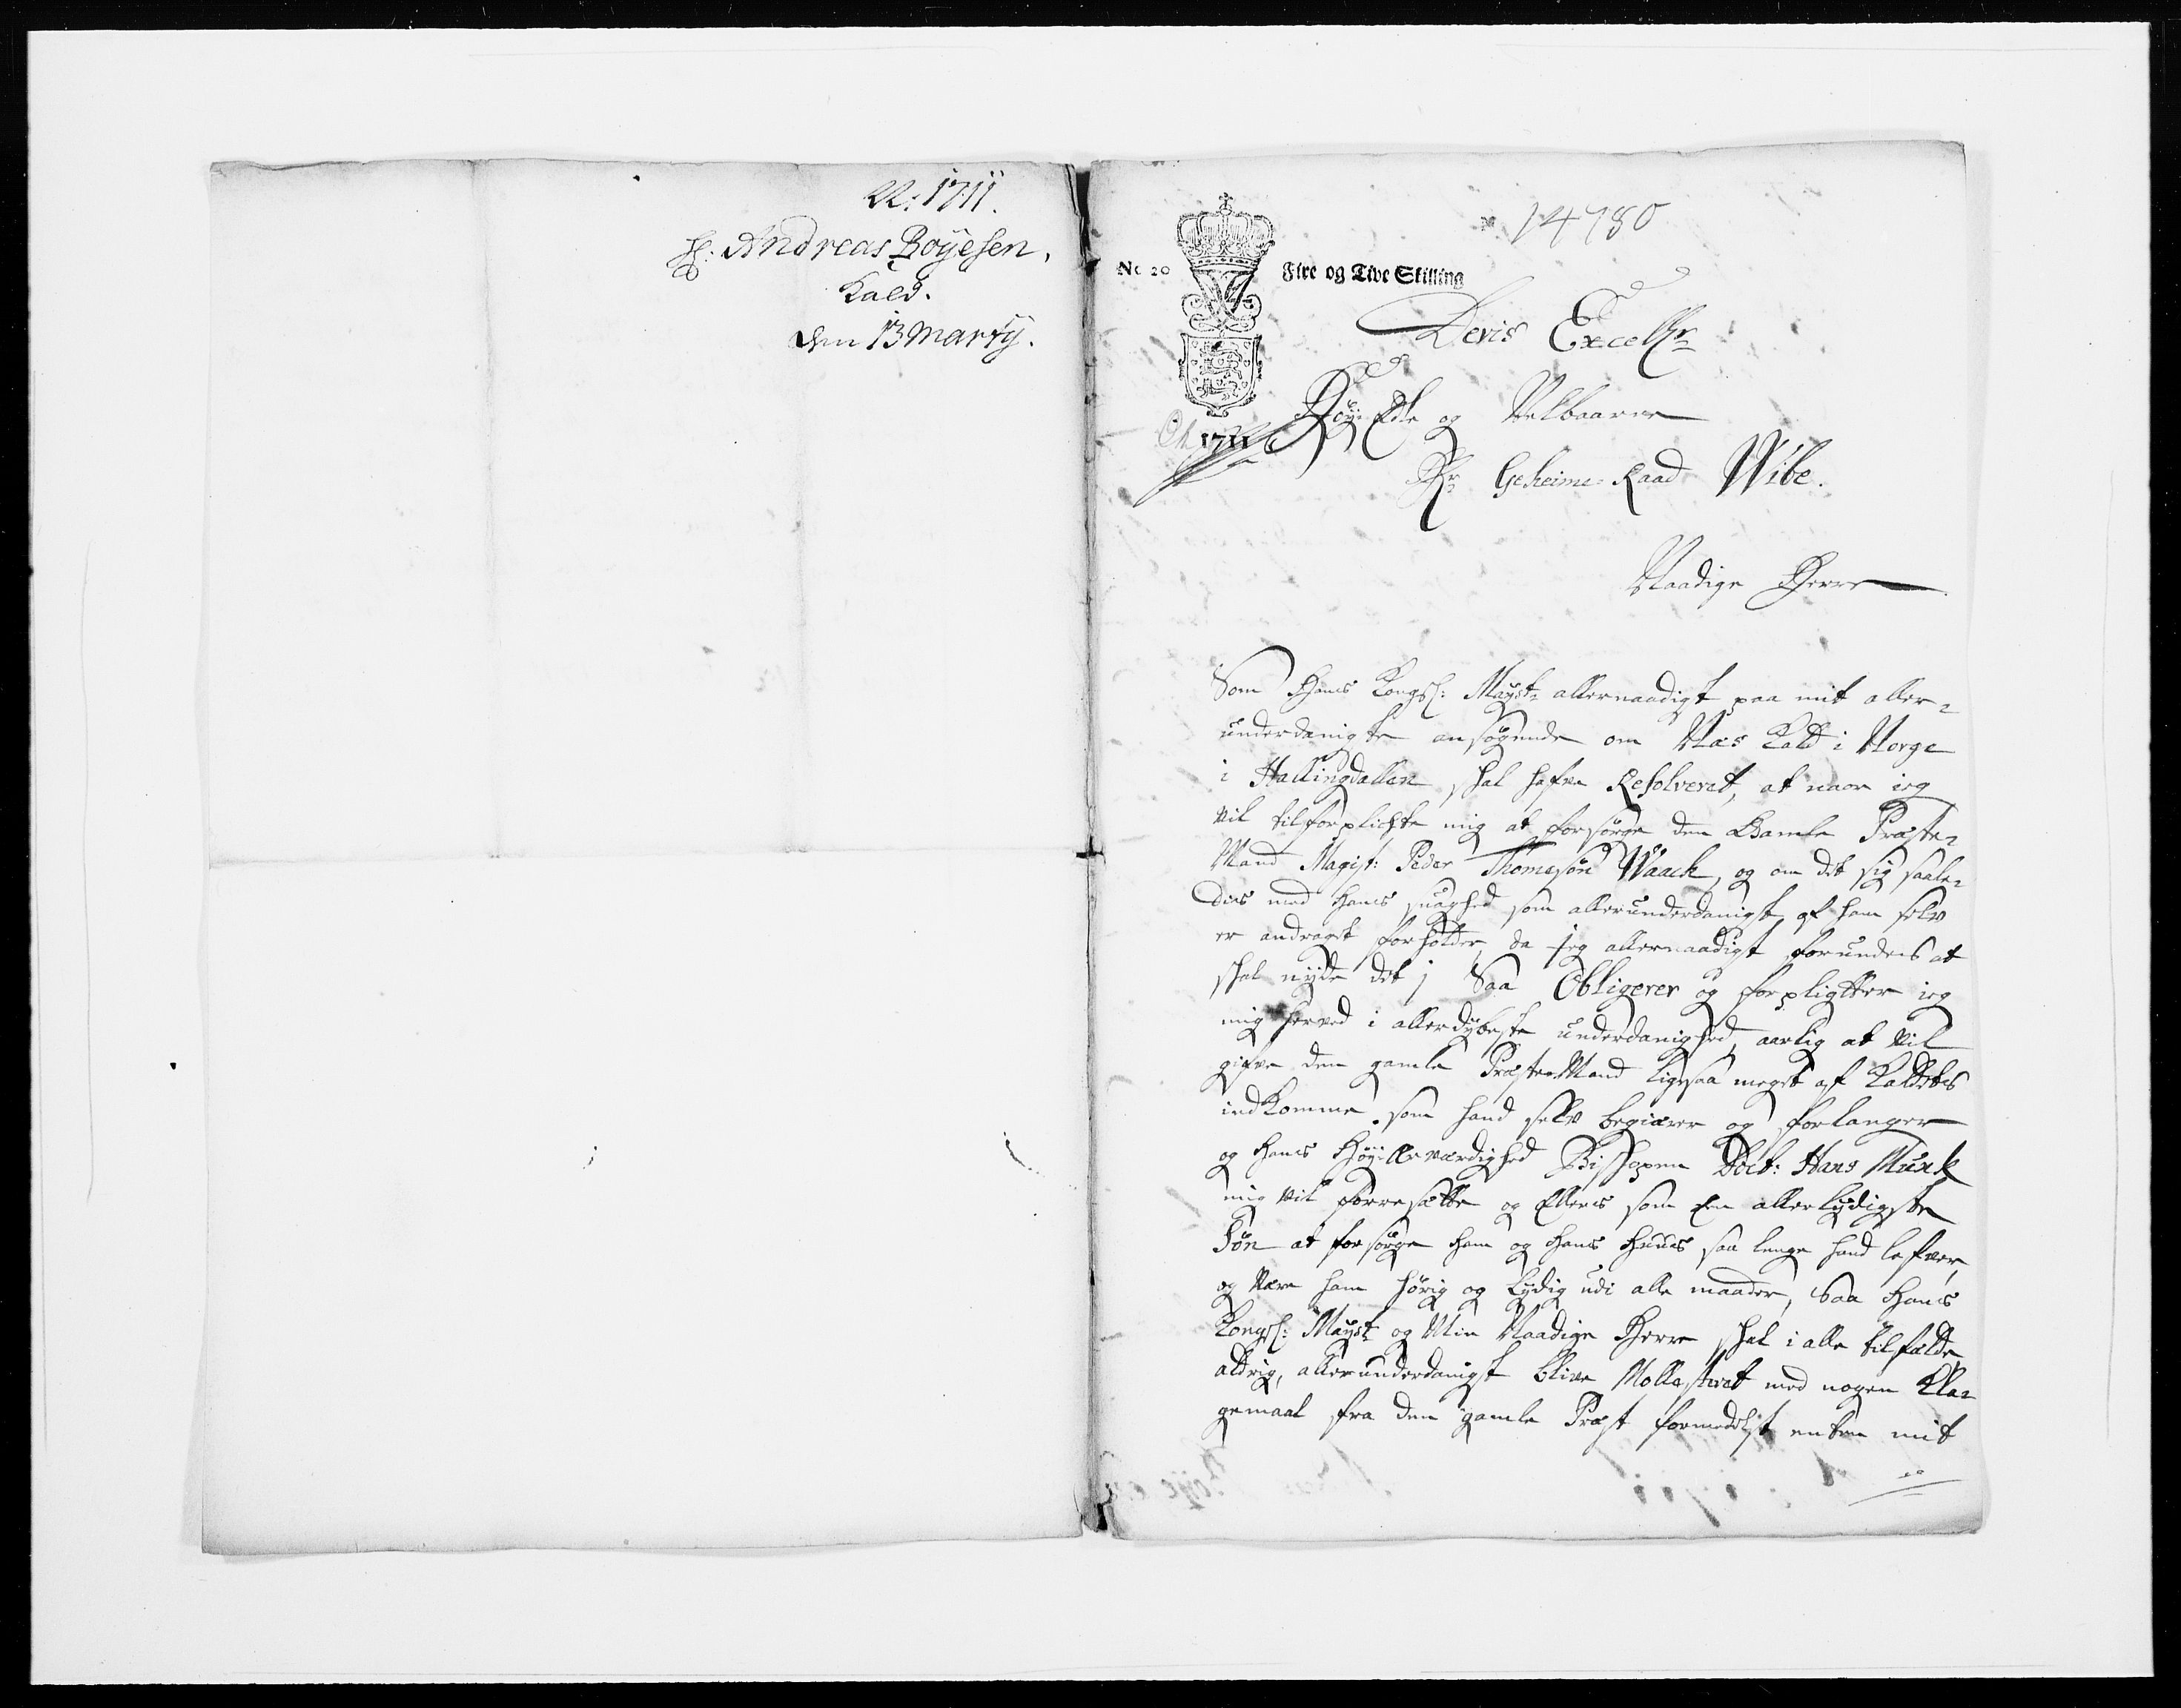 1711.
H: Andreas Boÿesen.
Kald.
den 13 Martÿ.
14780
No 20
Fire og Tive Skilling
Deris Excellence
1711
Høÿ Edle og Velbaarne
Hr Geheime-Raad Wibe.
Naadige Herre
Som Hans Kongl: Maÿst: allernaadigst paa mit aller-
underdanigste ansøgende om Næs Kald i Norge
i Hallingdallen skal hafve Resolveret, at naar ieg
vil tilforplichte mig at forsørge den Gamle Præste-
Mand Magist: Peder Thomesøn Waack, og om det sig saale-
dis med hans suaghed som allerunderdanigst af ham selv
er andraget forholder, da jeg allernaadigst forundes at
skal nÿde det; Saa Obligerer og forpligtter ieg
mig herved i allerdÿbeste underdanighed, aarlig at vil
gifve den gamle Præste-Mand ligesaa meget af Kaldets
indkomme som hand selv begiærer og forlanger
og hans HøÿiÆrværdighed Bisshopen Doct: Hans Munk
mig vil forresætte og Ellers som Een allerlÿdigste
Søn at forsørge ham og hans Huus saa lenge hand lefver,
og være ham hørig og Lÿdig udi alle maader, Saa Hans
Kongl: Maÿst og Min Naadige Herre skal i alle tilfælde
aldrig, allerunderdanigst blive Mollesteret med nogen Kla-
gemaal fra den gamle Præst formedelst enten mit